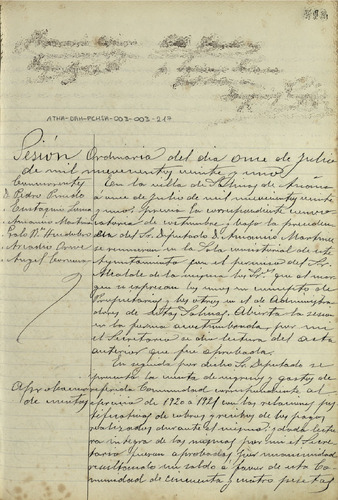 ATHA-DAH-PCHSA-003-003-217
Sesión Ordinaria del dia once de julio
de mil novecientos veinte y uno
Concurrentes
D. Pedro Pinedo
Eustaquio
Arcadio
Angel
En la villa de Salinas de Añana
a once de julio de mil novecientos veinte
y uno: previa la correspondiente convo-
catoria de costumbre y bajo la presiden-
cia del Sr. Diputado D. Ananias Martinez
se reunieron en la Sala ministerial de este
Ayuntamiento por el permiso del Sr.
Alcalde de la misma los Sres. que al mar-
gen se expresan los unos en concepto de
Propietarios y los otros en el de Administra-
dores de estas Salinas. Abierta la sesion
en la forma acostumbrada, por mi
el Secretario se dio lectura del acta
anterior que fue aprobada.
Aprobacion
de cuentas
En seguida por dicho Sr. Diputado se
presento la cuenta de ingresos y gastos de
referida Comunidad correspondiente al
ejercicio de 1920 a 1921 con las relaciones jus-
tificativas de cobros y recibos de los pagos
realizados durante el mismo: y dada lectu-
ra integra de las mismas por mi el Secre-
tario fueron aprobadas por unanimidad
resultando un saldo a favor de esta Co-
munidad de cincuenta y cuatro pesetas